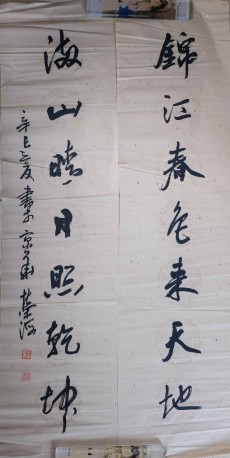 錦江春色来天地
海山晴月照乾坤
辛巳之夏書於京華